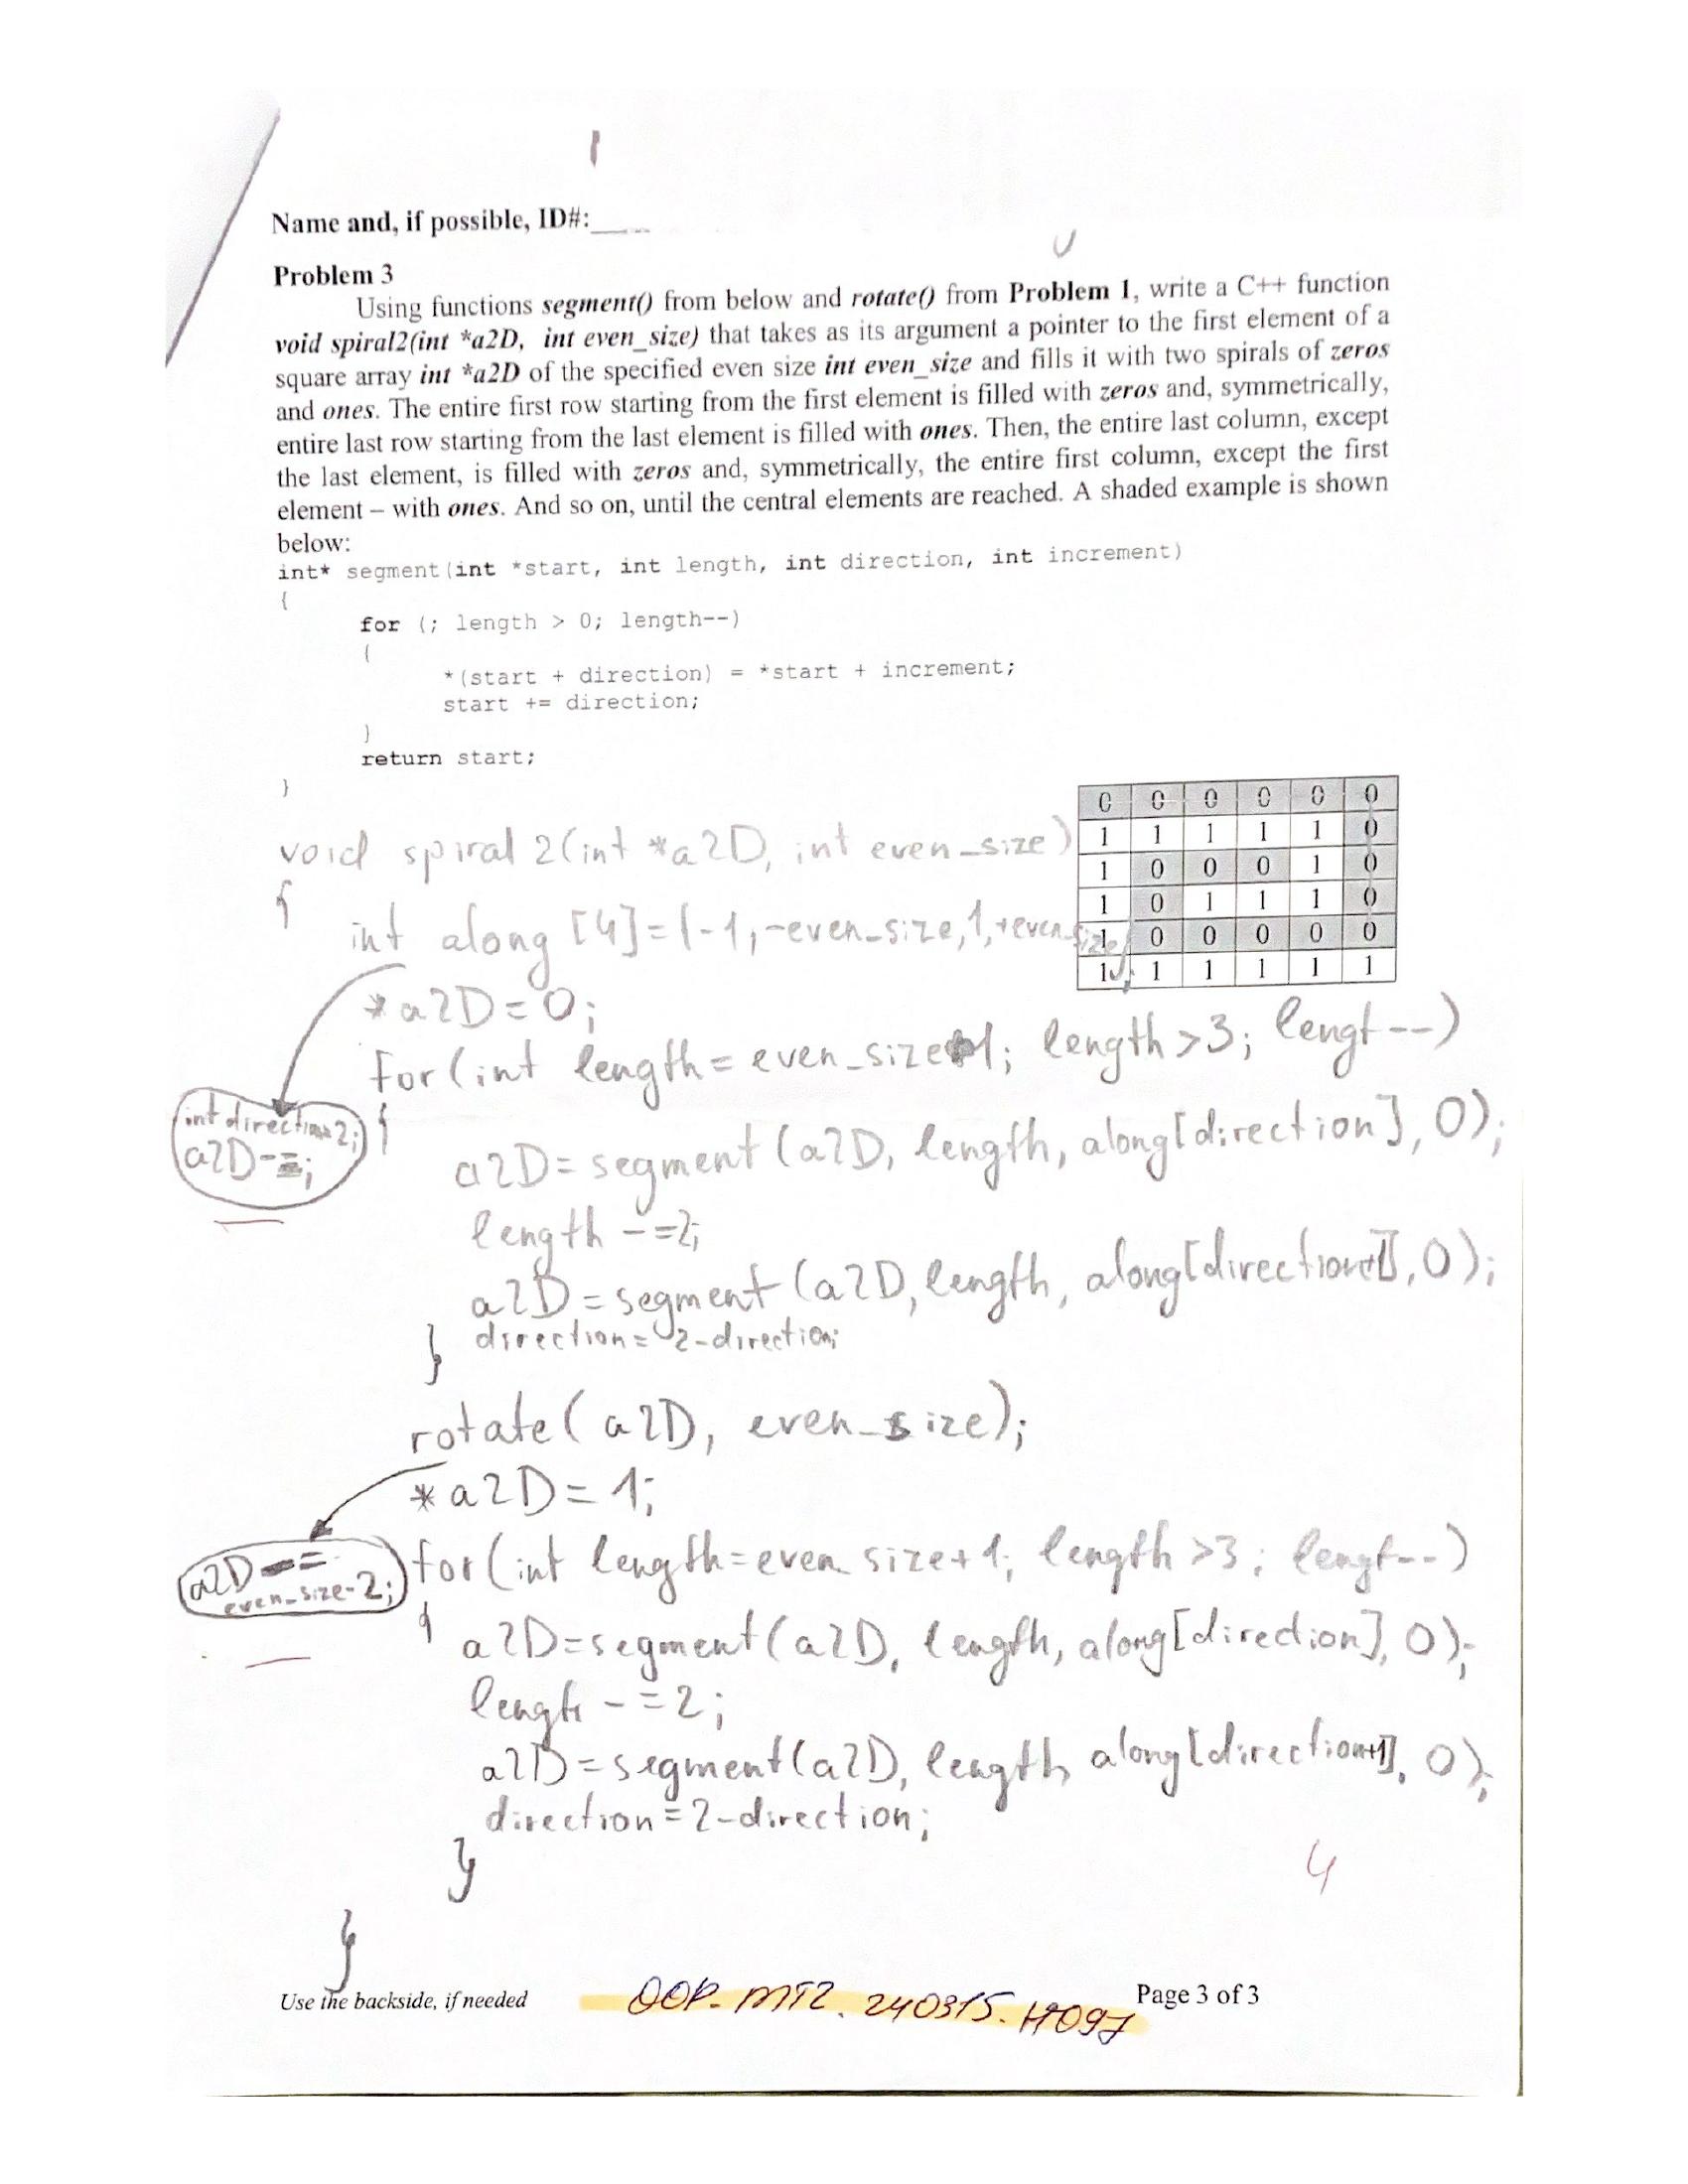 Name and, if possible, ID#:
Problem 3
Using functions segment() from below and rotate() from Problem 1, write a C++ function
void spiral2(int *a2D, int even_size) that takes as its argument a pointer to the first element of a
square array int *a2D of the specified even size int even_size and fills it with two spirals of zeros
and ones. The entire first row starting from the first element is filled with zeros and, symmetrically,
entire last row starting from the last element is filled with ones. Then, the entire last column, except
the last element, is filled with zeros and, symmetrically, the entire first column, except the first
element – with ones. And so on, until the central elements are reached. A shaded example is shown
below:
int* segment(int *start, int length, int direction, int increment)
{
for (; length > 0; length--)
{
*(start + direction) = *start + increment;
start += direction;
}
return start;
}
0 0 0 0 0 0
1 1 1 1 1 0
1 0 0 0 1 0
1 0 1 1 1 0
1 0 0 0 0 0
1 1 1 1 1 1
void spiral2(int *a2D, int even_size)
{
int along [4]={-1,-even_size,1,+even_size};
*a2D=0;
int direction=2;
a2D-=;
for(int length=even_size+1; length>3; lengt--)
{
a2D=segment(a2D, length, along[direction], 0);
length -=2;
a2D=segment(a2D, length, along[direction+1], 0);
direction=2-direction;
}
rotate(a2D, even_size);
*a2D=1;
a2D-=
even_size-2;
for(int length=even_size+1; length>3; lengt--)
{
a2D=segment(a2D, length, along[direction], 0);
lengh -=2;
a2D=segment(a2D, length, along[direction+1], 0);
direction=2-direction;
}
4
}
Use the backside, if needed
OOP-MT2.240315.H097
Page 3 of 3